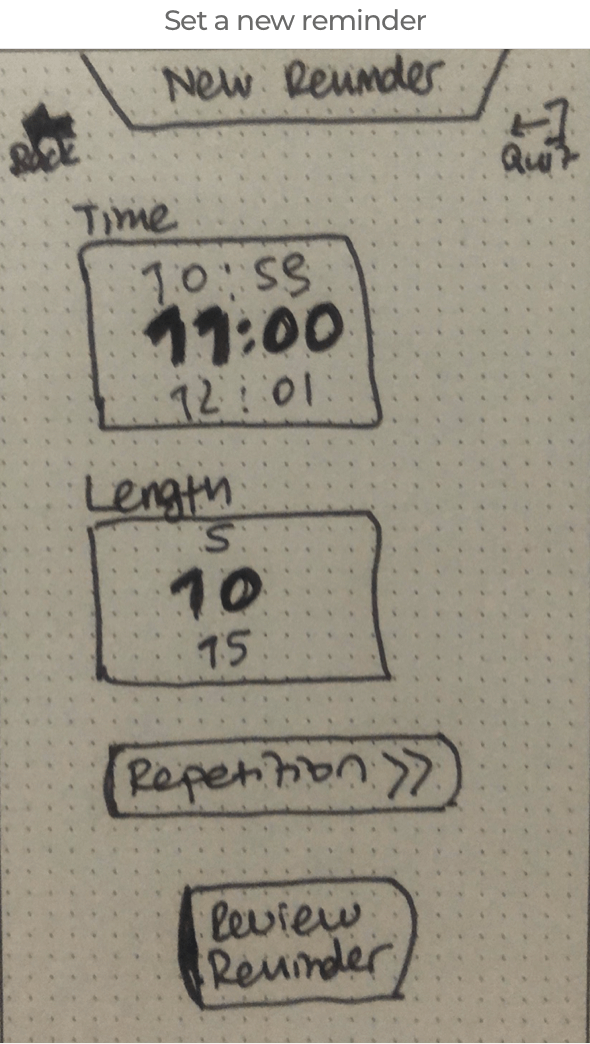 Set a new reminder
New Reminder
Back
Quit
Time
10:59
11:00
12:01
Length
5
10
15
Repetition >>
Review
Reminder